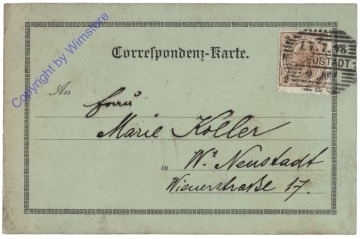 Copyright by Wimstore
Correspondenz-Karte.
An
Frau
Marie Koller
in W. Neustadt
Wienerstraße 17.